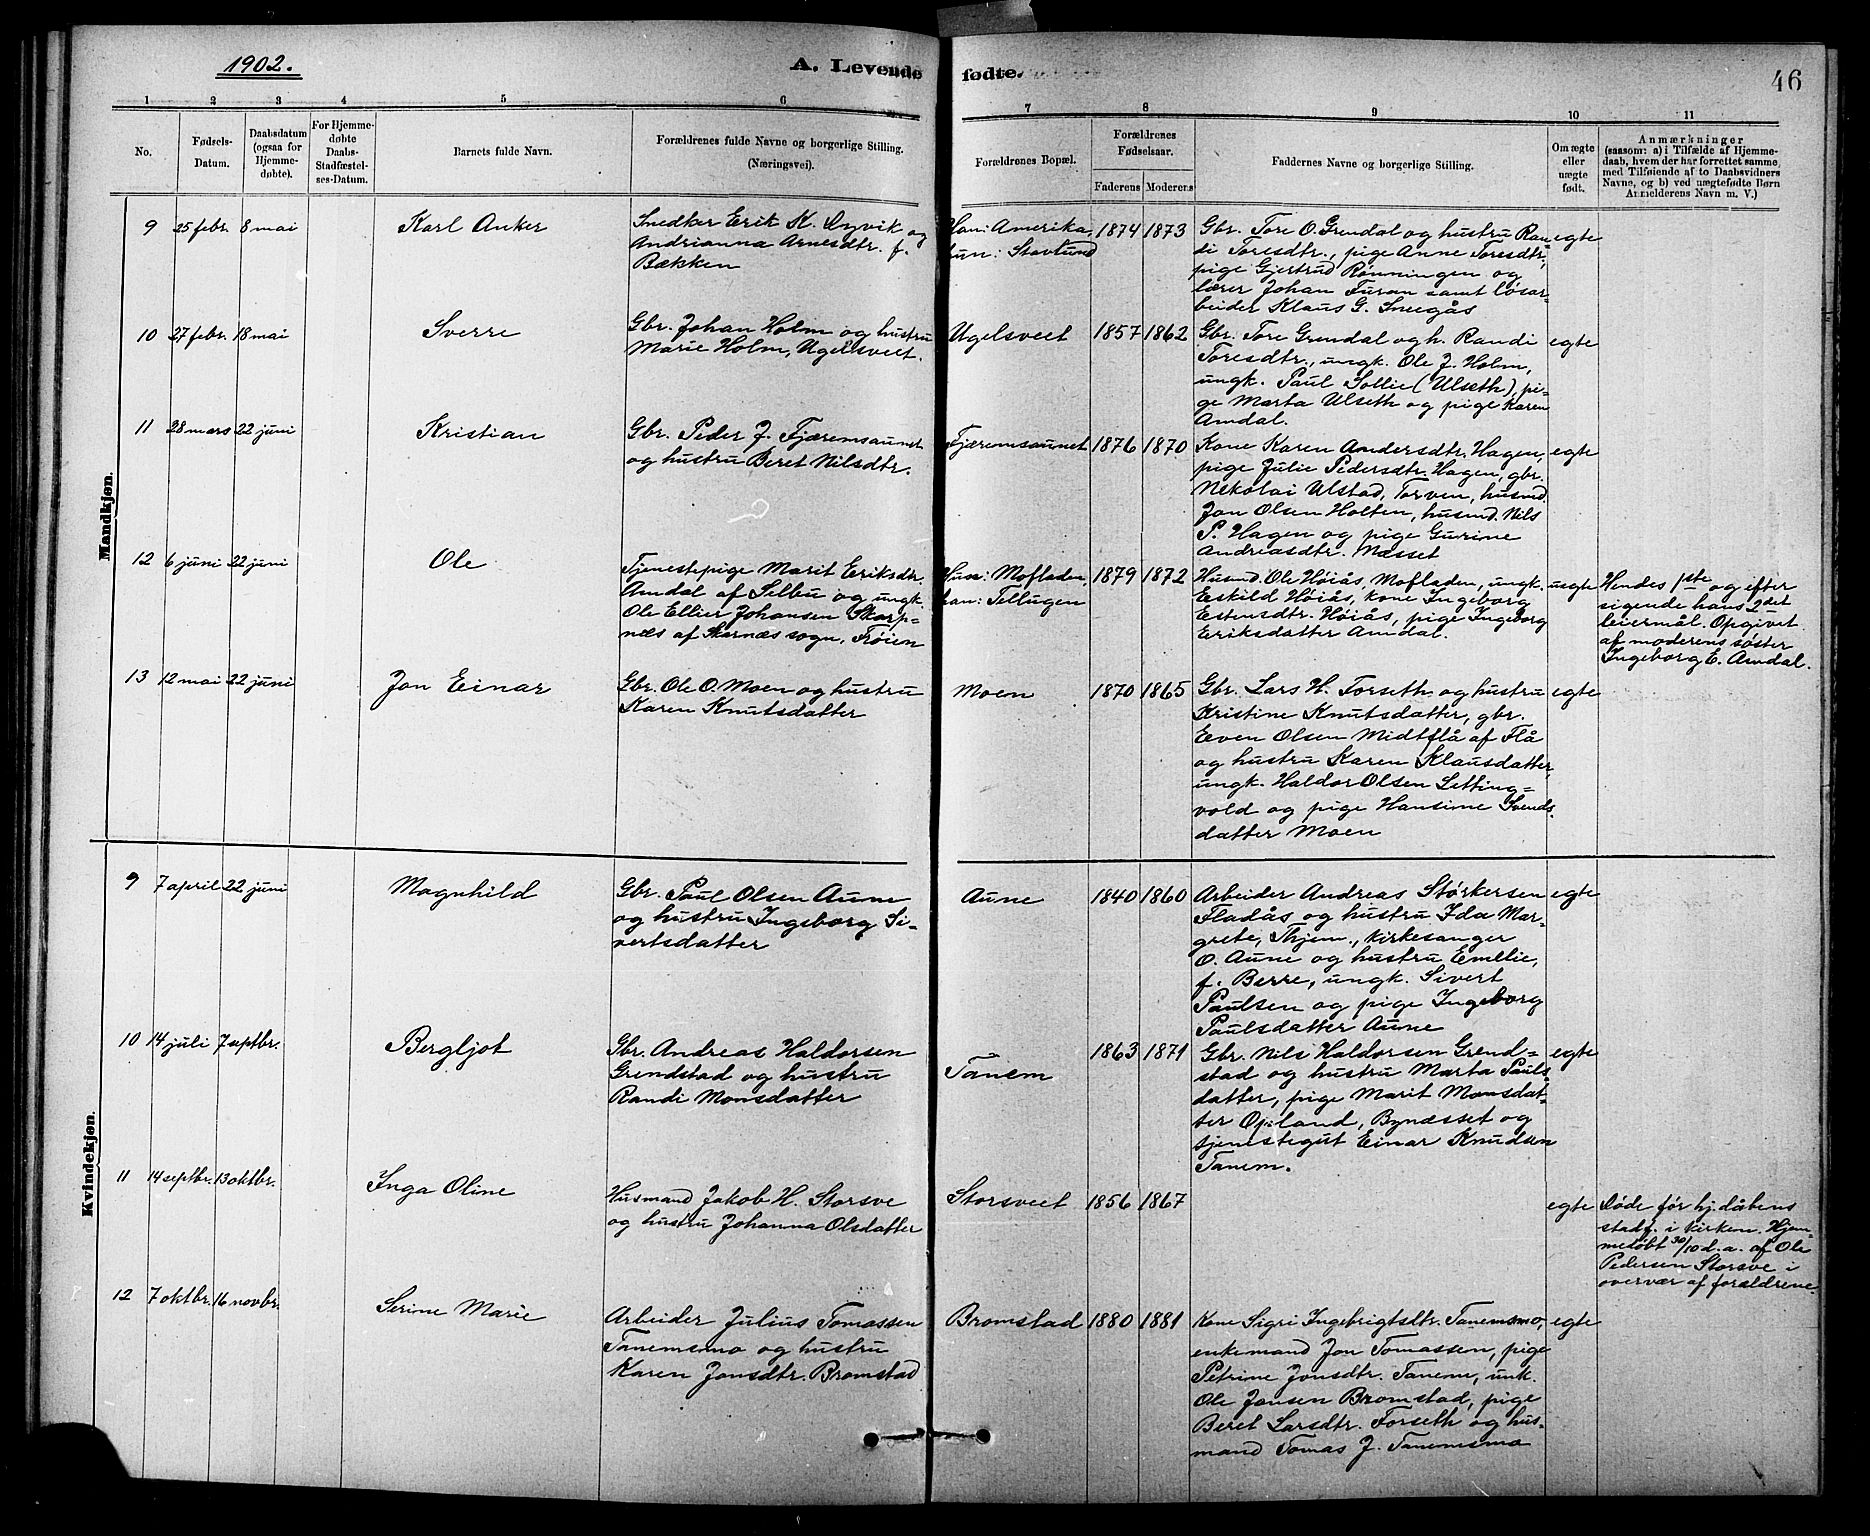 1902.
A. Levende fødte.
46
1 2 3 4 5 6 7 8 9 10 11
No.
Fødsels-
Datum.
Daabsdatum
(ogsaa for
Hjemme-
døbte).
For Hjemme-
døbte
Daabs-
Stadfæstel-
ses-Datum.
Barnets fulde Navn.
Forældrenes fulde Navne og borgerlige Stilling.
(Næringsvei).
Forældrenes Bopæl.
Forældrenes
Fødselsaar.
Faderens Moderens
Faddernes Navne og borgerlige Stilling.
Om ægte
eller
uægte
født.
Anmærkninger
(saasom: a) i Tilfælde af Hjemme-
daab, hvem der har forrettet samme
med Tilføiende af to Daabsvidners
Navne, og b) ved uægtefødte Børn
Anmelderens Navn m. V.)
Mandkjøn.
9 25 febr. 8 mai
Karl Anker
Snedker Erik K. Dyvik og
Andrianna Arnesdtr. f.
Bækken
Han: Amerika,
hun: Stavlund
1874 1873
Gbr. Tore O. Grendal og hustru Ran-
di Toresdtr., pige Anne Toresdtr,
pige Gjertrud Rønningen og
lærer Johan Furan samt løsar-
beider Klaus G. Sneegås
egte
10 27 febr. 18 mai
Sverre
Gbr. Johan Holm og hustru
Marie Holm, Ugelsveet.
Ugelsveet
1857 1862
Gbr. Tore Grendal og h. Randi
Toresdtr., ungk. Ole J. Holm,
ungk. Paul Sollie (Ulseth), pi-
ge Marta Ulseth og pige Karen
Amdal.
egte
11 28 mars 22 juni
Kristian
Gbr. Peder J. Fjæremsaunet
og hustru Beret Nilsdtr.
Fjæremsaunet
1876 1870
Kone Karen Andersdtr. Hagen,
pige Julie Pedersdtr. Hagen, gbr.
Nikolai Ulstad, Torven, husmd.
Jon Olsen Holten, husmd. Nils
P. Hagen og pige Gurine
Andreasdtr. Mæsset
egte
12 6 juni 22 juni
Ole
Tjenestepige Marit Eriksdtr.
Amdal af Selbu og ungk.
Ole Ellier Johansen Skarp-
næs af Skarnæs sogn, Frøien
Hun: Mofladen,
han: Tellugen
1879 1872
Husmd. Ole Høiås, Mofladen, ungk.
Eskild Høiås, kone Ingeborg
Estensdtr. Høiås, pige Ingeborg
Eriksdatter Amdal.
uegte
Hendes 1ste og efter
sigende hans 2det
leiermål. Opgivet
af moderens søster
Ingeborg E. Amdal.
13 12 mai 22 juni
Jon Einar
Gbr. Ole O. Moen og hustru
Karen Knutsdatter
Moen
1870 1865
Gbr. Lars H. Forseth og hustru
Kristine Knutsdatter, gbr.
Even Olsen Midtflå af Flå
og hustru Karen Klausdatter,
ungk. Haldor Olsen Letting-
vold og pige Hansine Svends-
datter Moen
egte
Kvindekjøn.
9 7 april 22 juni
Magnhild
Gbr. Paul Olsen Aune
og hustru Ingeborg Si-
vertsdatter
Aune
1840 1860
Arbeider Andreas Størkersen
Fladås og hustru Ida Mar-
grete, Thjem., kirkesanger
O. Aune og hustru Emelie,
f. Berre, ungk. Sivert
Paulsen og pige Ingeborg
Paulsdatter Aune
egte
10 14 juli 7 septbr.
Bergljot
Gbr. Andreas Haldorsen
Grendstad og hustru
Randi Monsdatter
Tanem
1863 1871
Gbr. Nils Haldorsen Grend-
stad og hustru Marta Pauls-
datter, pige Marit Monsdat-
ter Opland, Bynæsset og
tjenestegut Einar Knudsen
Tanem.
egte
11 14 septbr. 13 oktbr.
Inga Oline
Husmand Jakob H. Storsve
og hustru Johanna Olsdatter
Storsveet
1856 1867
egte
Døde før hj.dåbens
stadf. i kirken. Hjem-
medøbt 30/10 d.a. af Ole
Pedersen Storsve i
overvær af forældrene.
12 7 oktbr. 16 novbr.
Serine Marie
Arbeider Julius Tomassen
Tanemsmo og hustru
Karen Jonsdtr. Bromstad
Bromstad
1880 1881
Kone Sigri Ingebrigtsdtr. Tanemsmo,
enkemand Jon Tomassen, pige
Petrine Jonsdtr. Tanem, unk.
Ole Jonsen Bromstad, pige
Beret Larsdtr. Forseth og hus-
mand Tomas J. Tanemsmo
egte